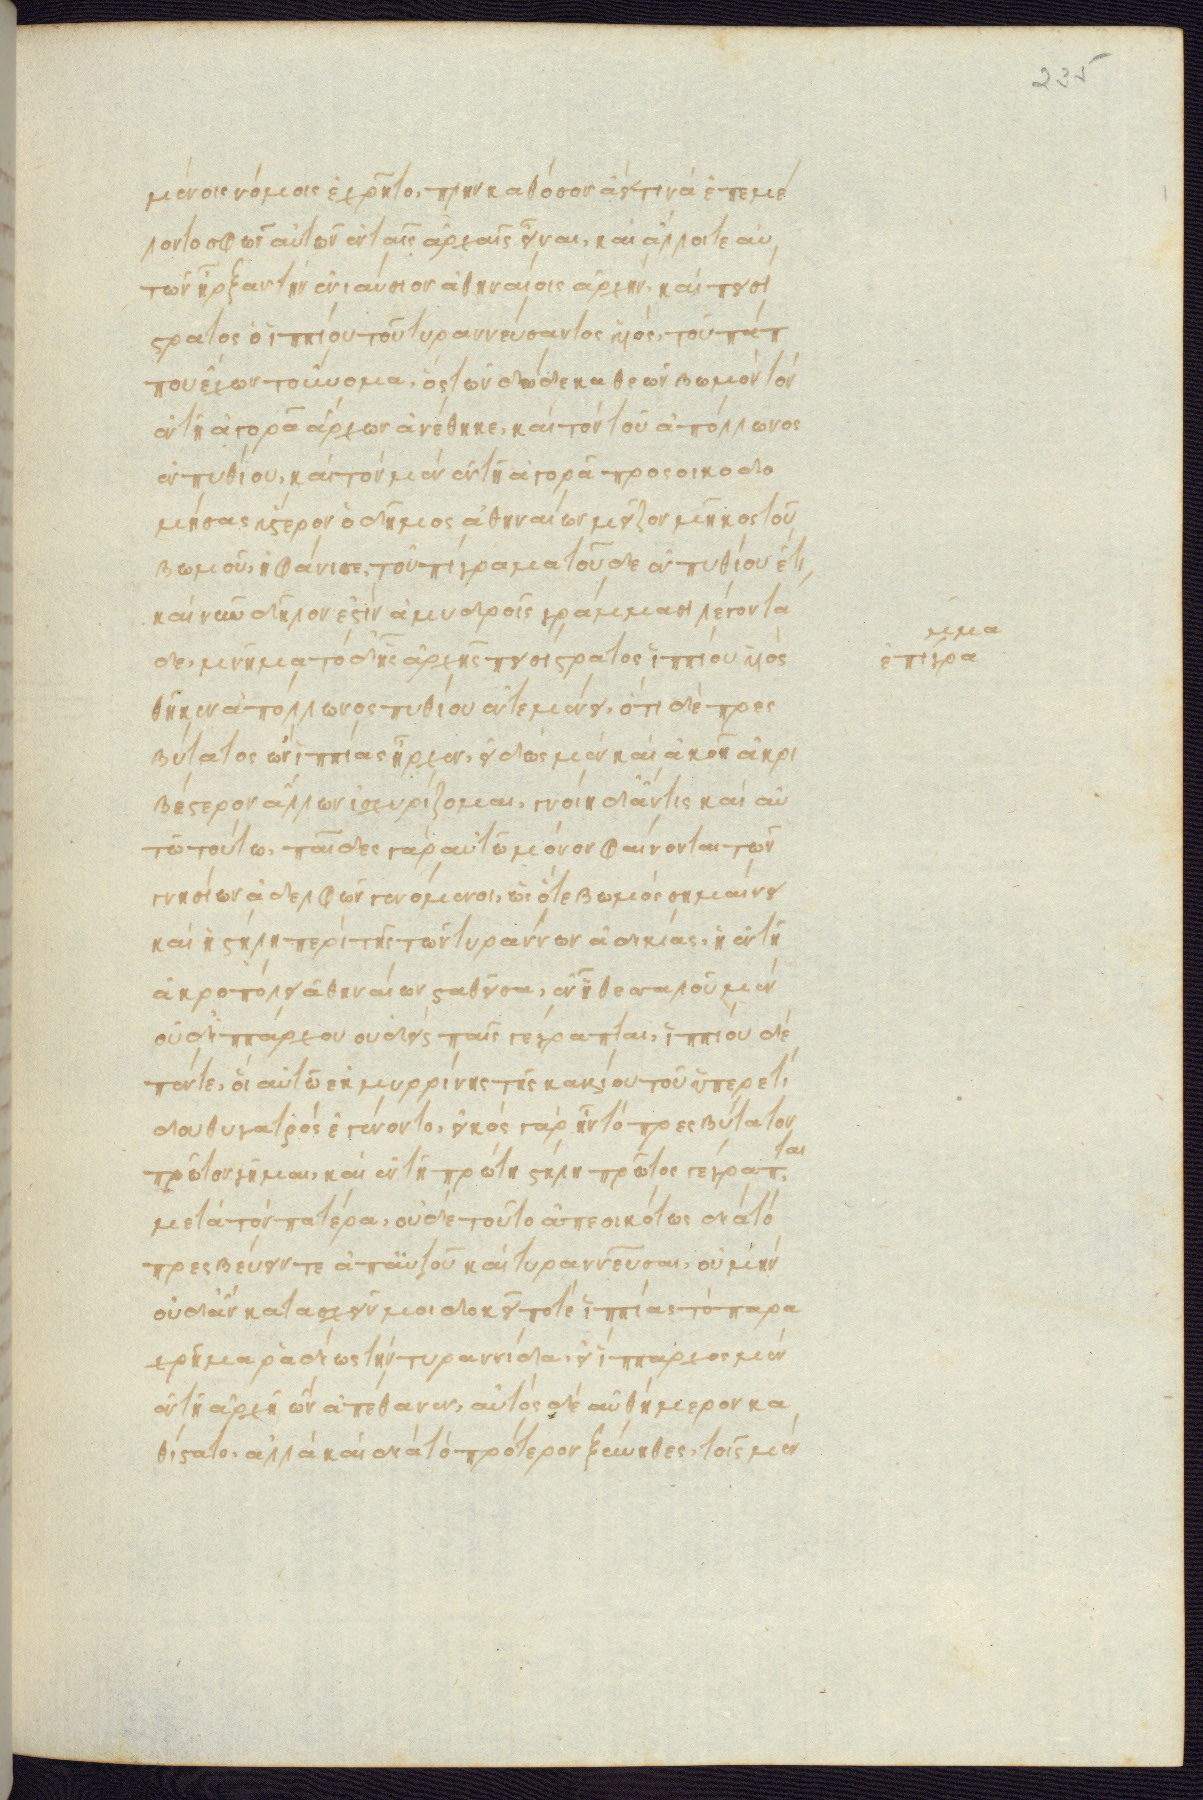 235
μένοις νόμοις ἐχρῆτο, πλὴν καθόσον ἀεί τινα ἐπεμέ
λοντο σφῶν αὐτῶν ἐν ταῖς ἀρχαῖς εἶναι, καὶ ἄλλοι τε αὐ
τῶν ἦρξαν τὴν ἐνιαύσιον ἀθηναίοις ἀρχήν, καὶ πεισί
στρατος ὁ ἱππίου τοῦ τυραννεύσαντος ὑιός, τοῦ πάπ
που ἔχων τοὔνομα, ὃς τῶν δώδεκα θεῶν βωμὸν τὸν
ἐν τῇ ἀγορᾷ ἄρχων ἀνέθηκε, καὶ τὸν τοῦ ἀπόλλωνος
ἐν πυθίου, καὶ τὸν μὲν ἐν τῇ ἀγορᾷ προσοικοδο
μήσας ὕστερον ὁ δῆμος ἀθηναίων μεῖζον μῆκος τοῦ
βωμοῦ, ἠφάνισε, τοὐπίγραμα τοῦ δε ἐν πυθίου ἔτι
καὶ νῦν δῆλον ἐστὶν ἀμυδροῖς γράμμασι λέγον τά
δε, μνῆμα τόδ' ἧς ἀρχῆς πεισίστρατος ἱππίου ὑιός
θῆκεν ἀπόλλωνος πυθίου ἐν τεμένει, ὅτι δὲ πρεσ
βύτατος ὢν ἱππίας ἦρχεν, εἰδὼς μὲν καὶ ἀκοῇ ἀκρι
βέστερον ἄλλων ἰσχυρίζομαι, γνοίη δ' ἄν τις καὶ αὐ
τῷ τούτω, παῖδες γὰρ αὐτῷ μόνον φαίνονται τῶν
γνησίων ἀδελφῶν γενόμενοι, ὡς ὅτε βωμὸς σημαίνει
καὶ ἡ στήλη περὶ τῆς τῶν τυράννων ἀδικίας, ἡ ἐν τῇ
ἀκροπόλει ἀθηναίων σταθεῖσα, ἐν ᾗ θεσσαλοῦ μὲν
οὐδ' ἱππάρχου οὐδεὶς παῖς γέγραπται, ἱππίου δὲ
πέντε, οἱ αὐτῷ ἐκ μυρρίνης τῆς καλλίου τοῦ ὑπερετί
δου θυγατρὸς ἐγένοντο, εἰκὸς γὰρ ἦν τὸ πρεσβύτατον
πρῶτον γῆμαι, καὶ ἐν τῇ πρώτη στήλη πρῶτος γέγραπται
μετὰ τὸν πατέρα, οὐδὲ τοῦτο ἀπεοικότως διὰ τὸ
πρεσβεύειν τε ἀπ' αὐτοῦ καὶ τυραννεῦσαι, οὐ μὴν
οὐδ' ἂν κατασχεῖν μοι δοκεῖ ποτὲ ἱππίας τὸ παρα
χρῆμα ῥαδίως τὴν τυραννίδα, εἰ ἵππαρχος μὲν
ἐν τῇ ἀρχῇ ὢν ἀπέθανεν, αὐτὸς δὲ αὐθήμερον κα
θίστατο, ἀλλὰ καὶ διὰ τὸ πρότερον ξύνηθες, τοῖς μὲν
ἐπίγρα
μμα